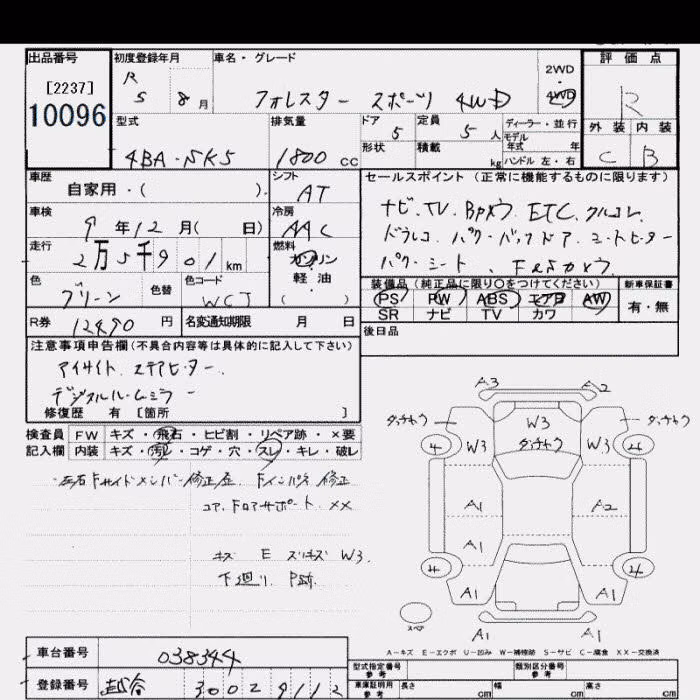 出品番号 初度登録年月 車名・グレード 評価点
[2237] R
10096 5 8 月 フォレスター スポーツ 4WD 2WD・4WD R
型式 排気量 ドア 定員 ディーラー・並行 外装 内装
4BA-SK5 1800 cc 5 5 人 モデル年式 年 C B
形状 積載 kg ハンドル 左・右
車歴 シフト セールスポイント(正常に機能するものに限ります)
自家用・( ). AT
車検 冷房 ナビ.TV.Bカメラ.ETC.クルコン.
9 年 12 月( 日) AAC ドラレコ.パワーバックドア.シートヒーター
走行 燃料 パワーシート.
2万5千901 km ガソリン
軽・油
( )
色 色替 色コード 装備品(純正品に限り○をつけてください) 新車保証書
グリーン WCJ PS PW ABS エアB AW 有・無
SR ナビ TV カワ
R券 12490 円 名変通知期限 月 日 後日品
注意事項申告欄(不具合内容等は具体的に記入して下さい)
アイサイト.ステアヒーター.
デジタルルームミラー
修復歴 有 [箇所 ]
検査員 FW キズ・飛石・ヒビ割・リペア跡・×要
記入欄 内装 キズ・汚レ・コゲ・穴・スレ・キレ・破レ
左右Fサイドメンバー修正歴 Fインパネ修正
コア.Fロアサポート XX
キズ E スリキズ W3.
下廻り P跡
A3 A2
タッチアウ タッチアウ
W3
4 W3 タッチアウ W3 4
A1 A2
A1
4 4
A1 A1
スペア
A1 A1
A-キズ E-エクボ U-凹み W-補修跡 S-サビ C-腐食 XX-交換済
車台番号 038344 型式指定番号 参考 類別区分番号 参考
登録番号 越谷 300 2 9112 車庫証明用 参考 長さ cm 幅 cm 高さ cm